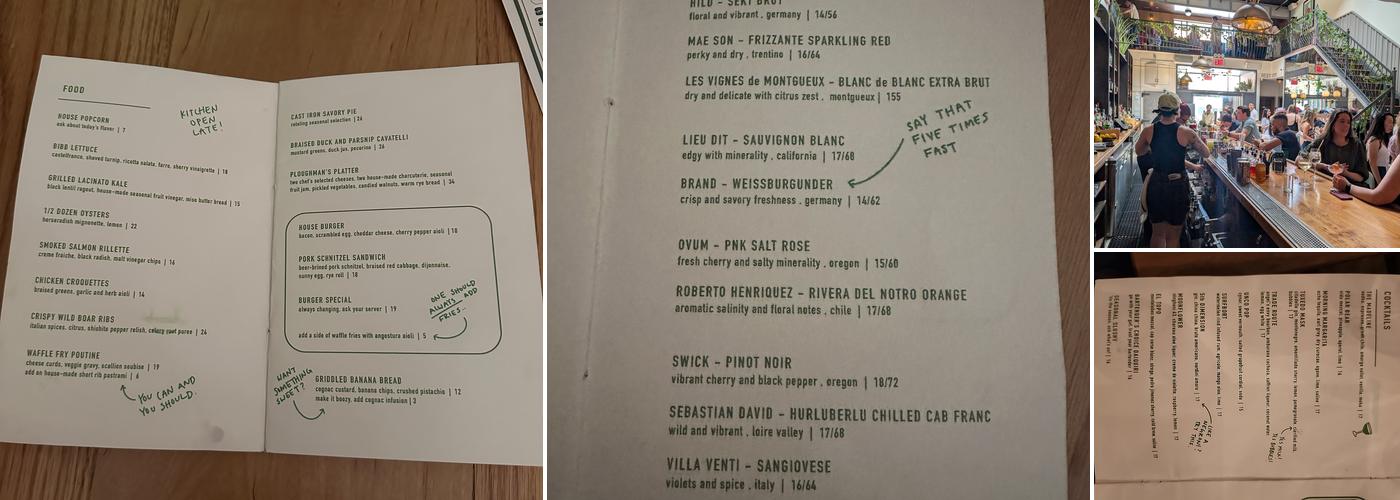 FOOD
KITCHEN
OPEN
LATE!
HOUSE POPCORN
ask about today's flavor | 7
BIBB LETTUCE
castelfranco, shaved turnip, ricotta salata, farro, sherry vinaigrette | 18
GRILLED LACINATO KALE
black lentil ragout, house-made seasonal fruit vinegar, miso butter bread | 15
1/2 DOZEN OYSTERS
horseradish mignonette, lemon | 22
SMOKED SALMON RILLETTE
creme fraiche, black radish, malt vinegar chips | 16
CHICKEN CROQUETTES
braised greens, garlic and herb aioli | 14
CRISPY WILD BOAR RIBS
italian spices, citrus, shishito pepper relish, celery root puree | 24
WAFFLE FRY POUTINE
cheese curds, veggie gravy, scallion soubise | 19
add on house-made short rib pastrami | 6
YOU CAN AND
YOU SHOULD.
CAST IRON SAVORY PIE
rotating seasonal selection | 26
BRAISED DUCK AND PARSNIP CAVATELLI
mustard greens, duck jus, pecorino | 26
PLOUGHMAN'S PLATTER
two chef's selected cheeses, two house-made charcuterie, seasonal
fruit jam, pickled vegetables, candied walnuts, warm rye bread | 34
HOUSE BURGER
bacon, scrambled egg, cheddar cheese, cherry pepper aioli | 18
PORK SCHNITZEL SANDWICH
beer-brined pork schnitzel, braised red cabbage, dijonnaise,
sunny egg, rye roll | 18
BURGER SPECIAL
always changing, ask your server | 19
ONE SHOULD
ALWAYS ADD
FRIES..
add a side of waffle fries with angostura aioli | 5
WANT
SOMETHING
SWEET?
GRIDDLED BANANA BREAD
cognac custard, banana chips, crushed pistachio | 12
make it boozy, add cognac infusion | 3
HILD - SEKT BRUT
floral and vibrant . germany | 14/56
MAE SON - FRIZZANTE SPARKLING RED
perky and dry . trentino | 16/64
LES VIGNES de MONTGUEUX - BLANC de BLANC EXTRA BRUT
dry and delicate with citrus zest . montgueux | 155
SAY THAT
FIVE TIMES
FAST
LIEU DIT - SAUVIGNON BLANC
edgy with minerality . california | 17/68
BRAND - WEISSBURGUNDER
crisp and savory freshness . germany | 14/62
OVUM - PNK SALT ROSE
fresh cherry and salty minerality . oregon | 15/60
ROBERTO HENRIQUEZ - RIVERA DEL NOTRO ORANGE
aromatic salinity and floral notes . chile | 17/68
SWICK - PINOT NOIR
vibrant cherry and black pepper . oregon | 18/72
SEBASTIAN DAVID - HURLUBERLU CHILLED CAB FRANC
wild and vibrant . loire valley | 17/68
VILLA VENTI - SANGIOVESE
violets and spice . italy | 16/64
COCKTAILS
THE MADELINE
POLAR BEAR
MORNING MARGARITA
TUXEDO MASK
TRADE ROUTE
UNCO POP
SURFRONT
5TH DIMENSION
MOONFLOWER
EL TOPO
BARTENDER'S CHOICE DAIQUIRI
SEASONAL SLUSHY